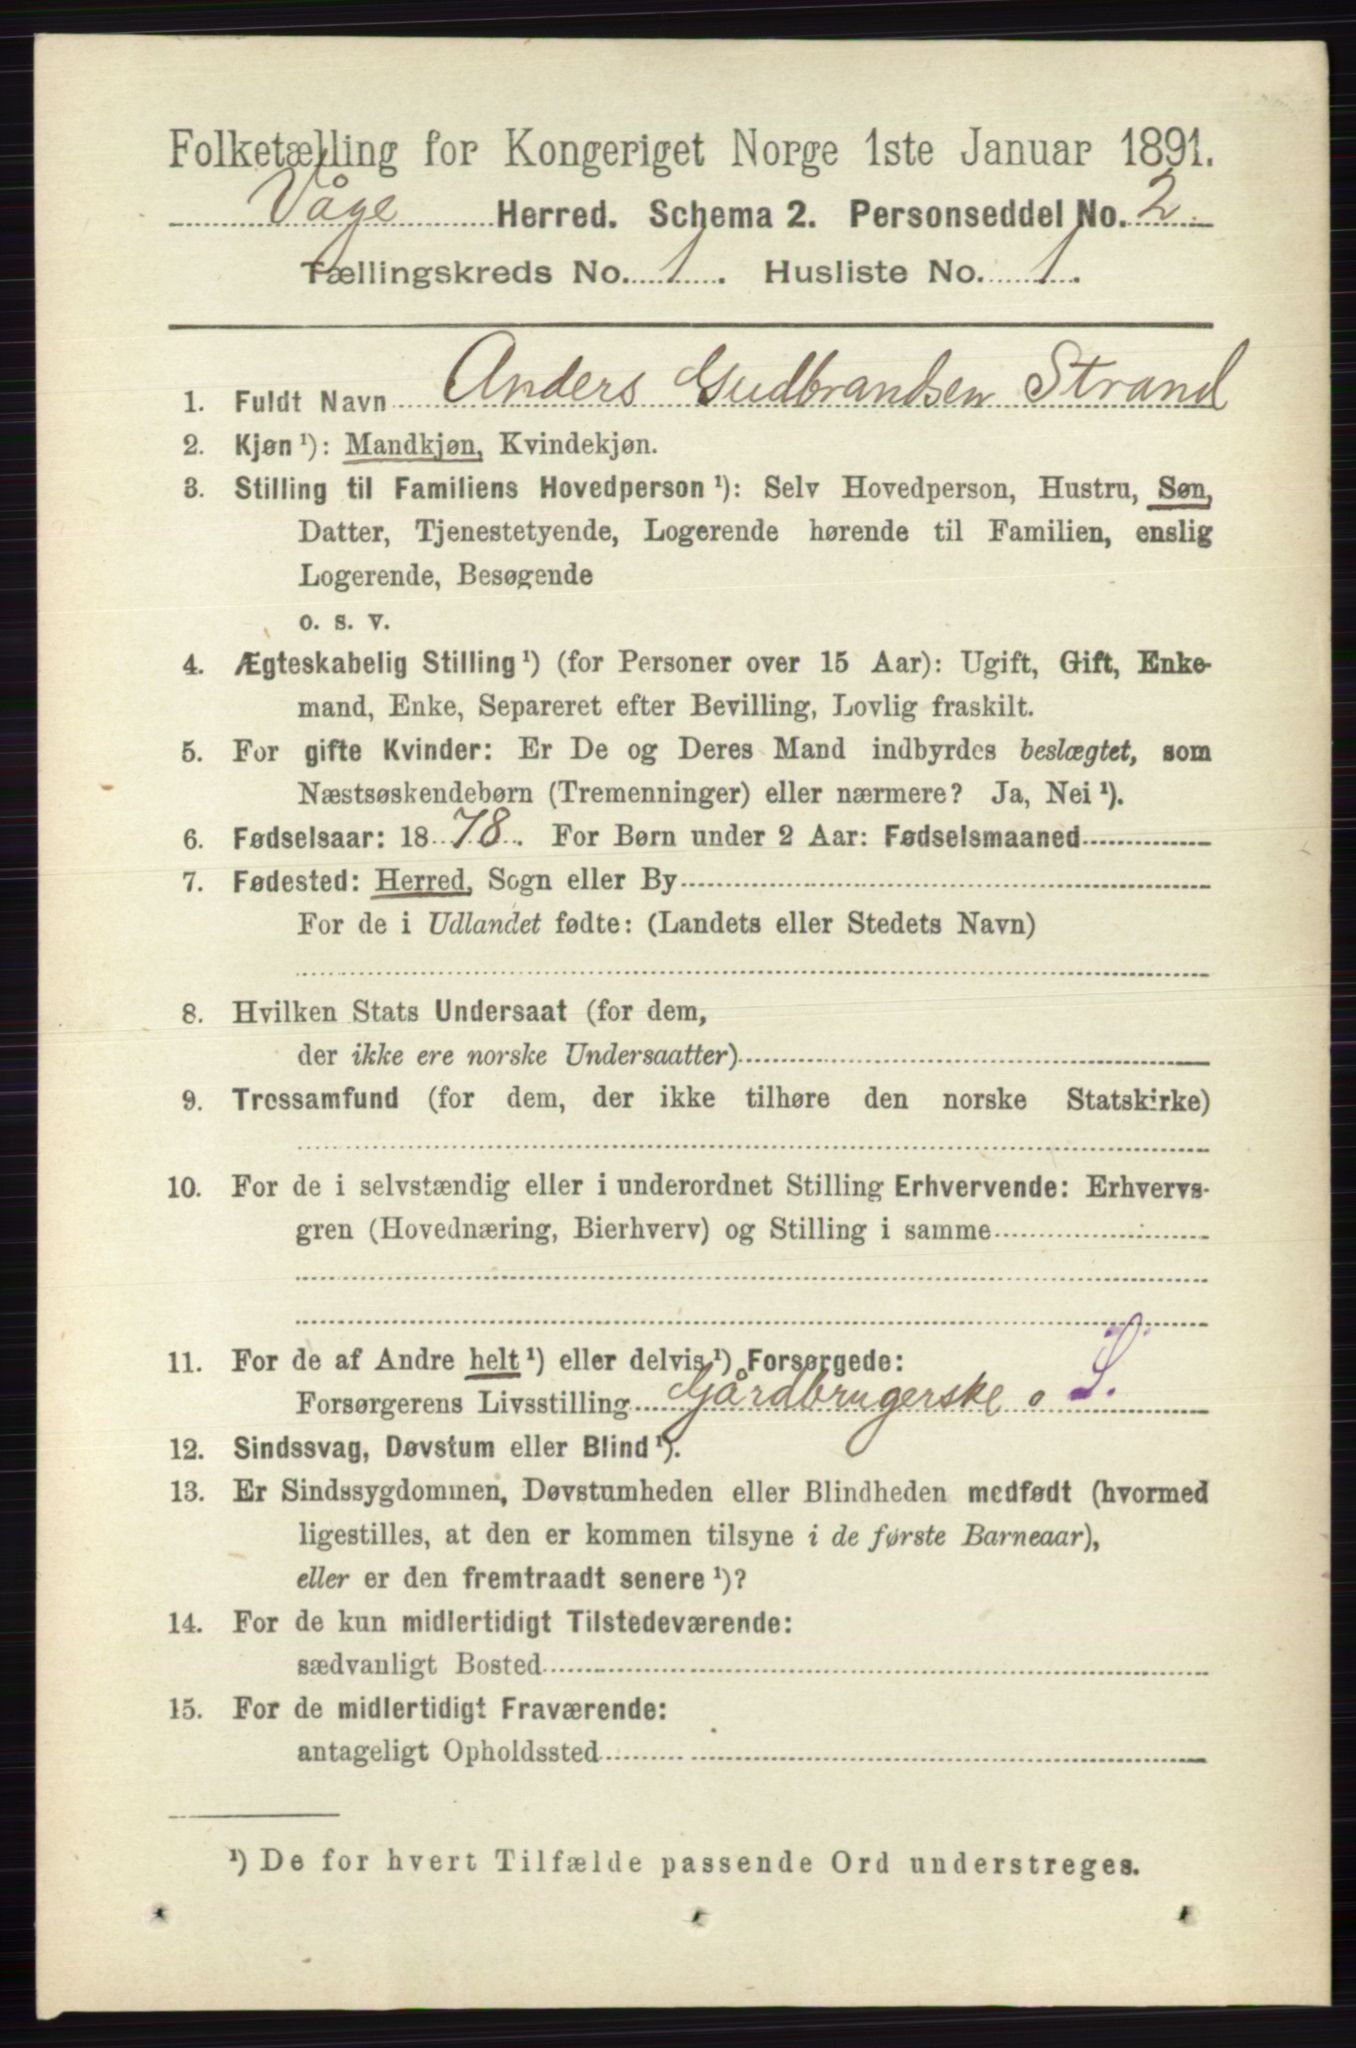 Folketælling for Kongeriget Norge 1ste Januar 1891.
Våge Herred. Schema 2. Personseddel No. 2.
Tællingskreds No. 1. Husliste No. 1.
1. Fuldt Navn Anders Gudbrandsen Strand
2. Kjøn¹): Mandkjøn, Kvindekjøn.
3. Stilling til Familiens Hovedperson¹): Selv Hovedperson, Hustru, Søn,
Datter, Tjenestetyende, Logerende hørende til Familien, enslig
Logerende, Besøgende
o. s. v.
4. Ægteskabelig Stilling¹) (for Personer over 15 Aar): Ugift, Gift, Enke-
mand, Enke, Separeret efter Bevilling, Lovlig fraskilt.
5. For gifte Kvinder: Er De og Deres Mand indbyrdes beslægtet, som
Næstsøskendebørn (Tremenninger) eller nærmere? Ja, Nei¹).
6. Fødselsaar: 1878. For Børn under 2 Aar: Fødselsmaaned
7. Fødested: Herred, Sogn eller By
For de i Udlandet fødte: (Landets eller Stedets Navn)
8. Hvilken Stats Undersaat (for dem,
der ikke ere norske Undersaatter)
9. Trossamfund (for dem, der ikke tilhøre den norske Statskirke)
10. For de i selvstændig eller i underordnet Stilling Erhvervende: Erhvervs-
gren (Hovednæring, Bierhverv) og Stilling i samme
11. For de af Andre helt¹) eller delvis¹) Forsørgede:
Forsørgerens Livsstilling Gårdbrugerske o S.
12. Sindssvag, Døvstum eller Blind¹).
13. Er Sindssygdommen, Døvstumheden eller Blindheden medfødt (hvormed
ligestilles, at den er kommen tilsyne i de første Barneaar),
eller er den fremtraadt senere¹)?
14. For de kun midlertidigt Tilstedeværende:
sædvanligt Bosted
15. For de midlertidigt Fraværende:
antageligt Opholdssted
¹) De for hvert Tilfælde passende Ord understreges.